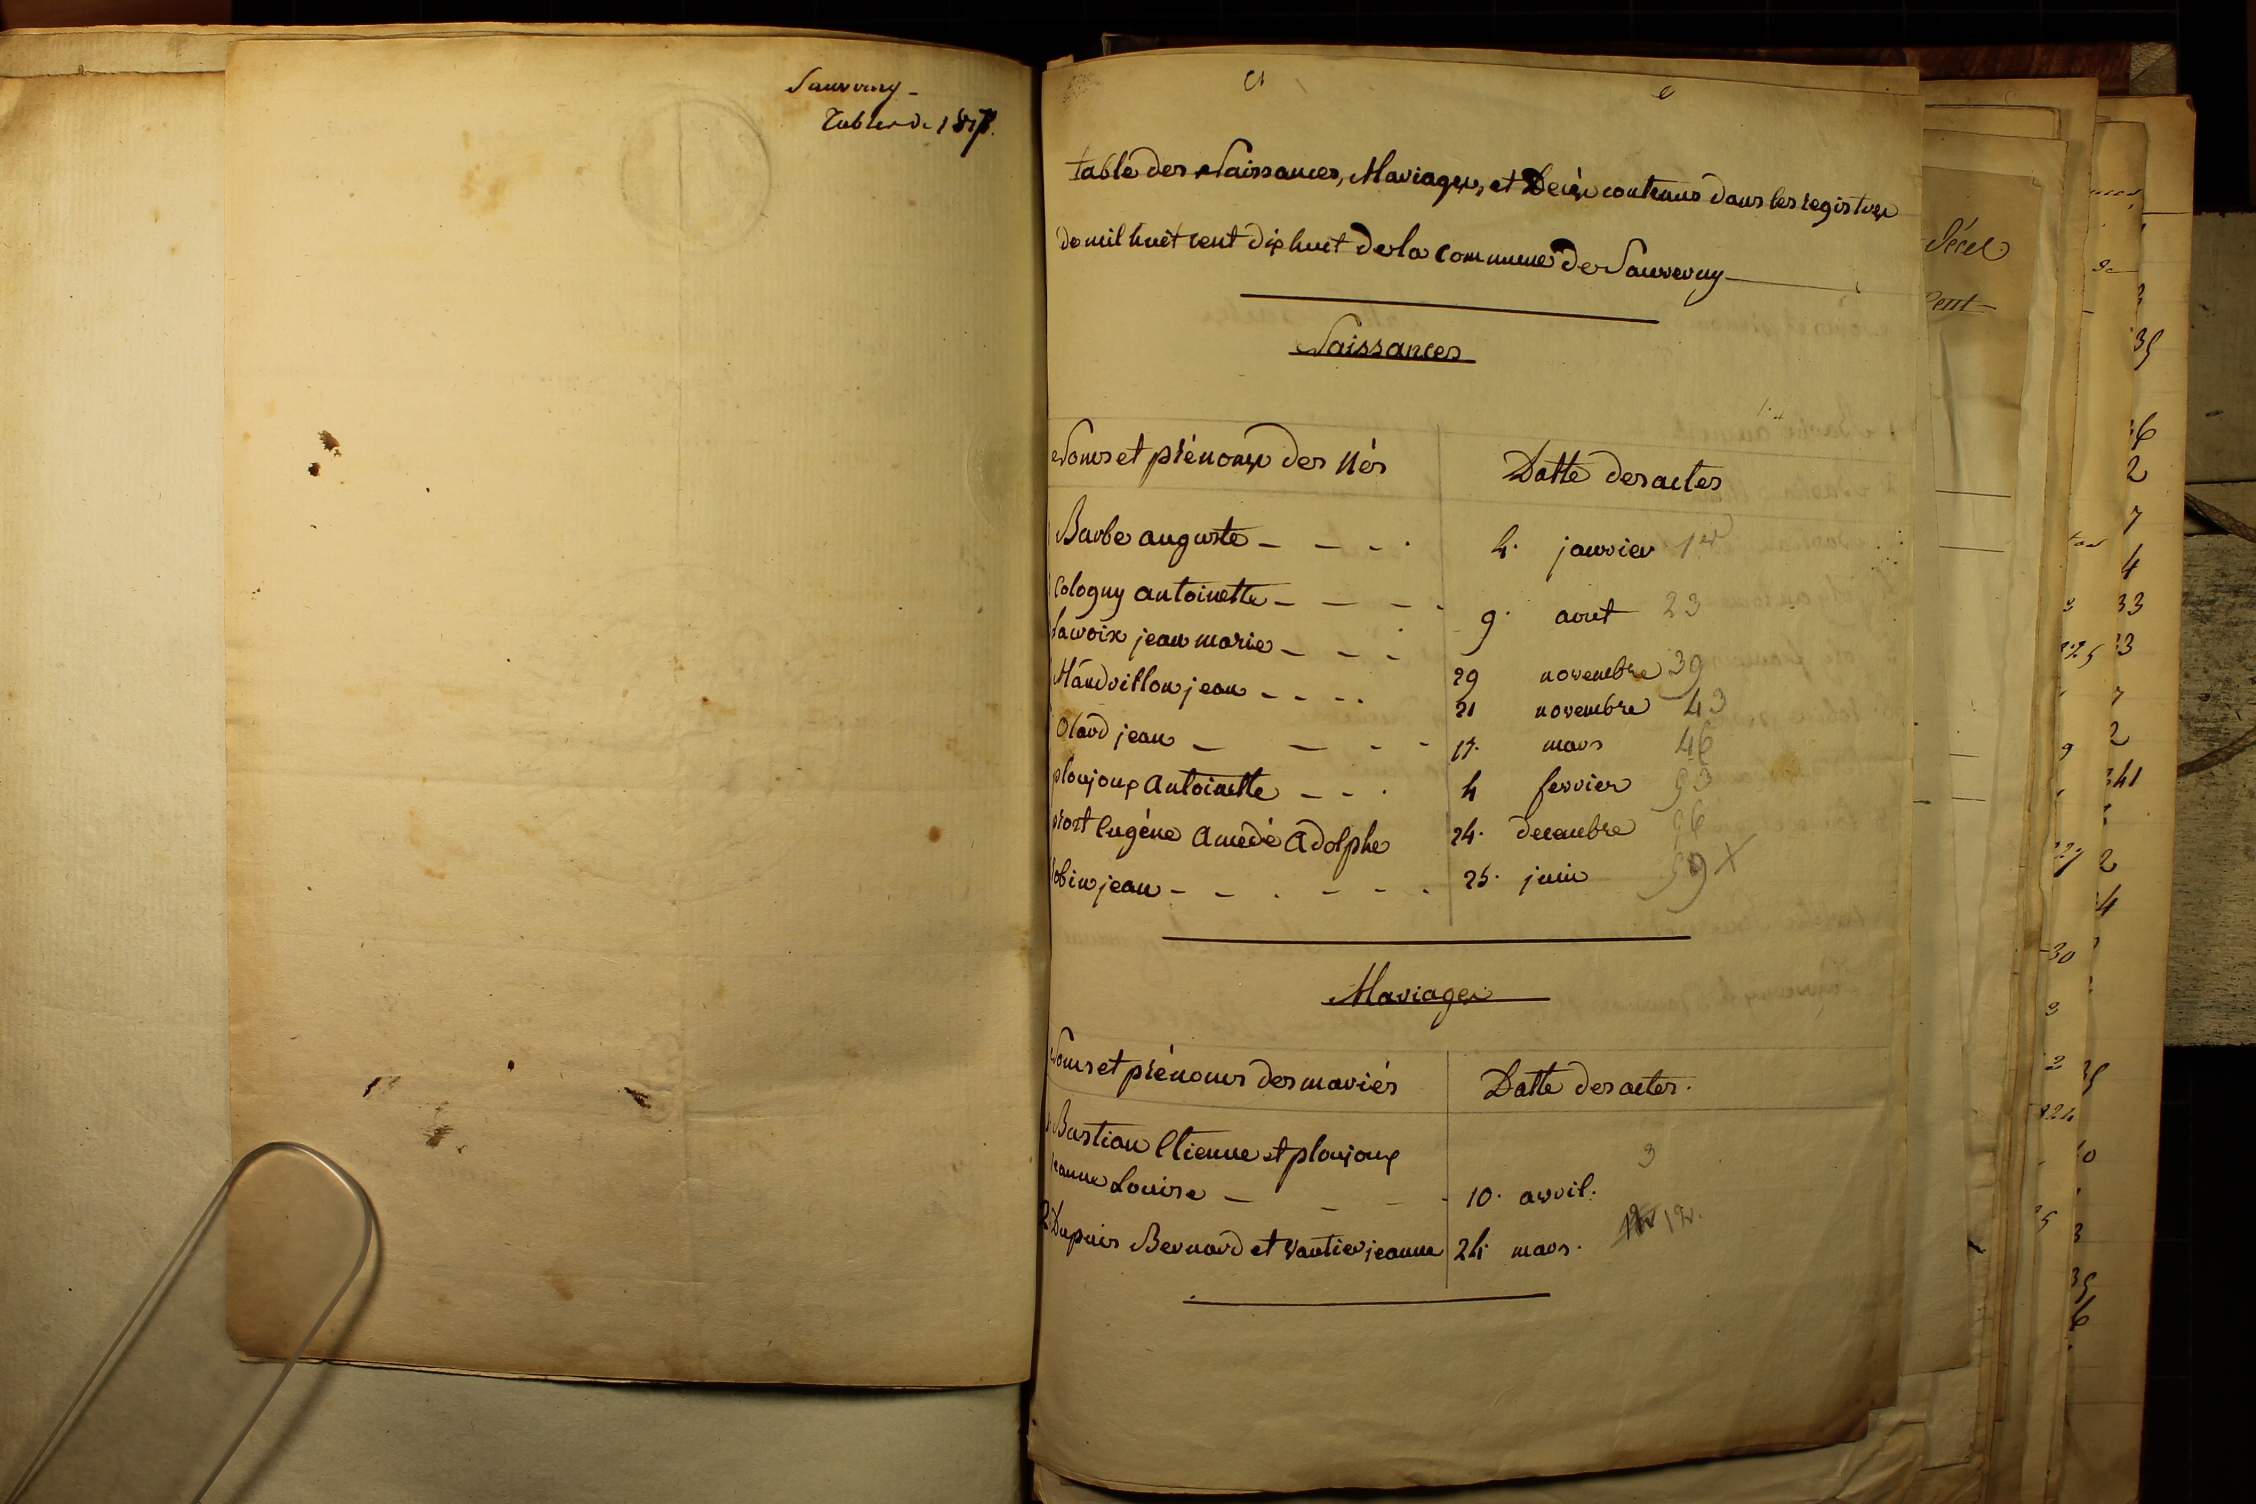 Sauverny -
Tables de 1817.
table des Naissances, Mariages, et Decès contenus dans les registres
de mil huit cent dix huit de la commune de Sauverny
Naissances
Noms et prénoms des Nés Datte des actes
Barbe auguste - - - . 4. janvier 1er
Cologny antoinette - - - . 9. aout 23
Lacroix jean marie - - - 29 novembre 39
Mandrillon jean - - - . 21 novembre 43
Olard jean - - - - 17. mars 46
ploujoux Antoinette - - . 4 fevrier 53
prost Eugéne Amédé Adolphe 24. decembre 56
tobin jean - - . - - . 25. juin 59 X
Mariages
Noms et prénoms des mariés Datte des actes.
Bastian Etienne et ploujoux 3
jeanne Louise - - - - 10. avril.
2 Dupuis Bernard et vautier jeanne 24 mars. 12.
Décel
Cent